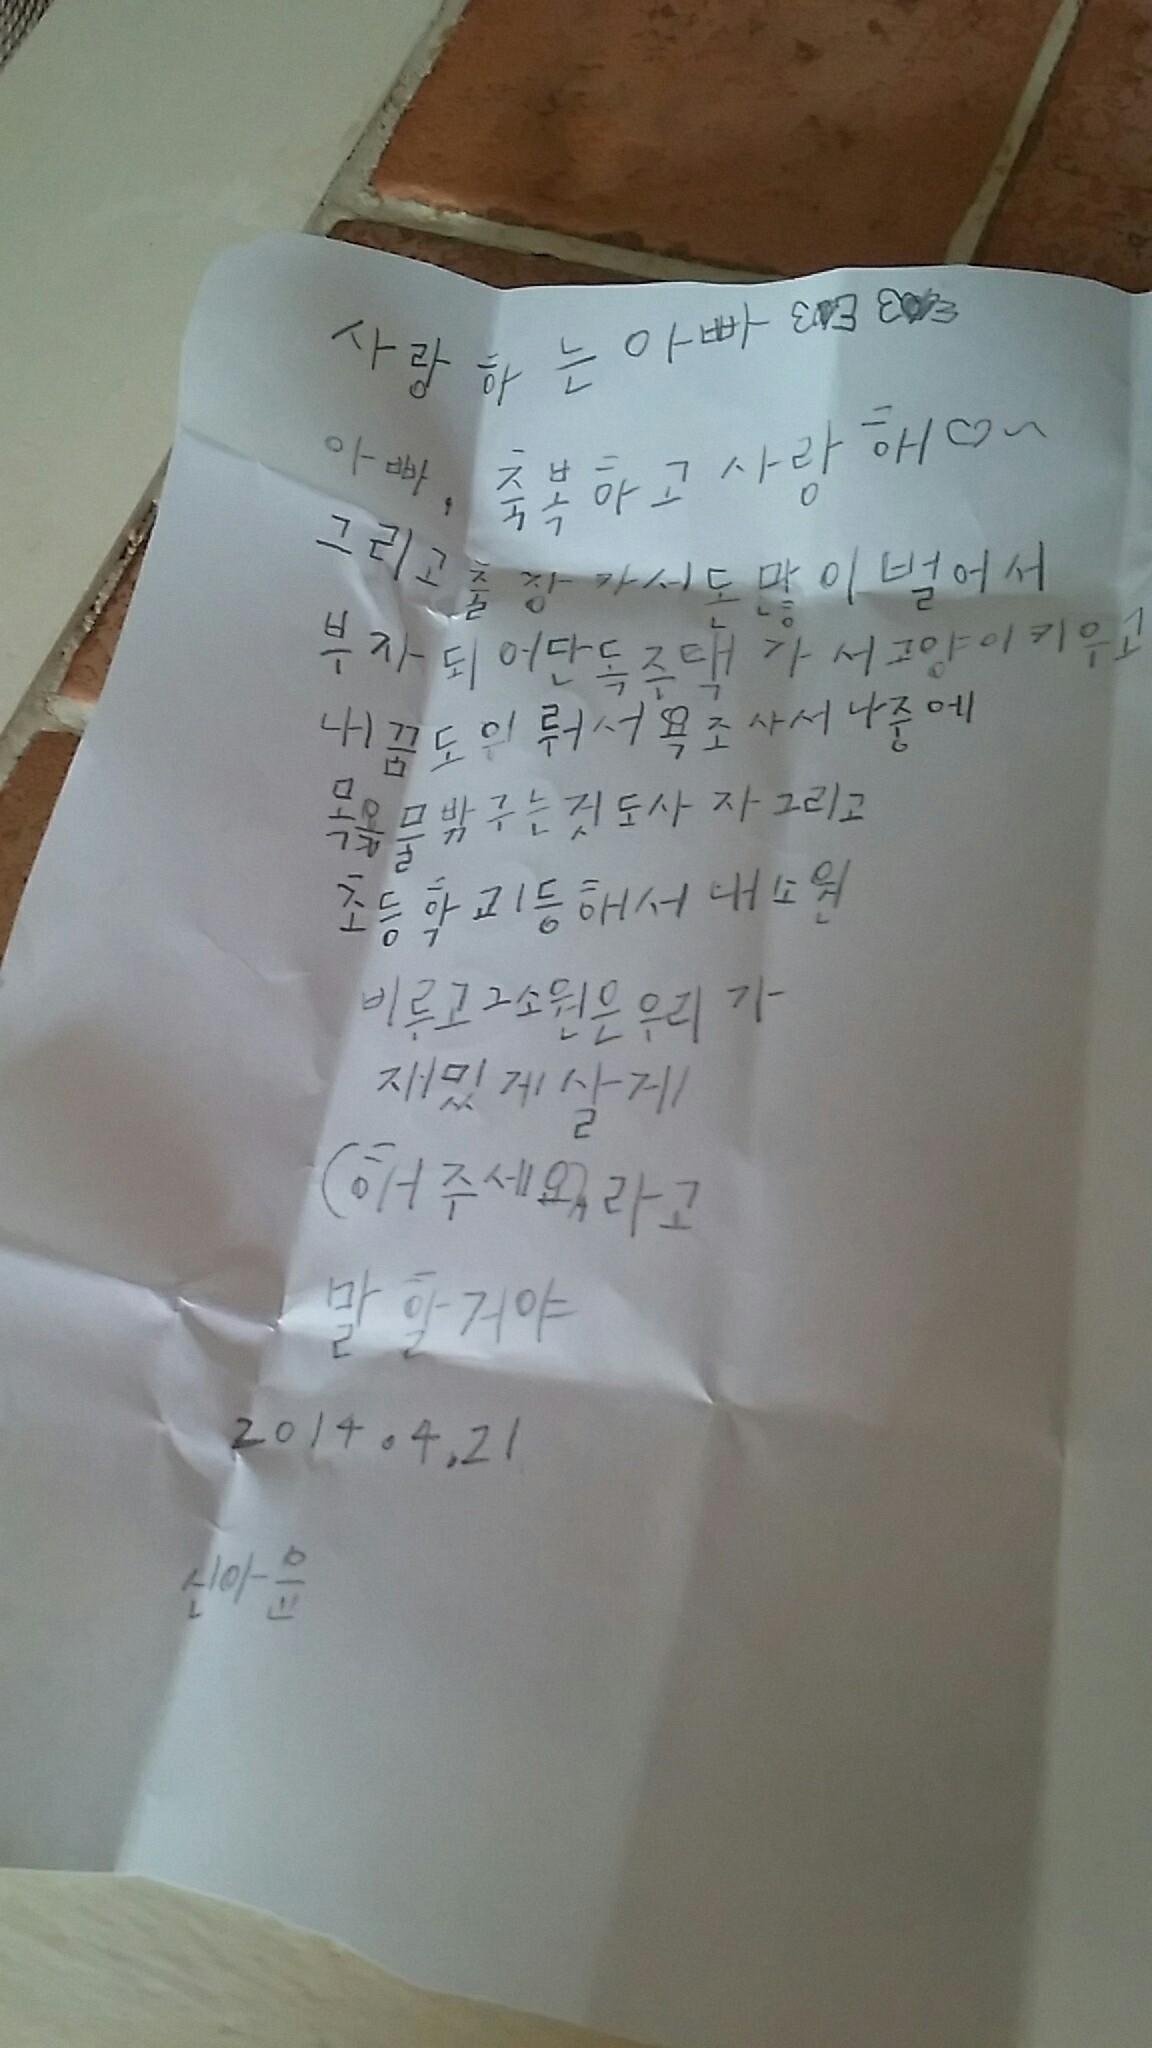 사랑하는 아빠
아빠, 축복하고 사랑해♡~
그리고 출장가서 돈 많이 벌어서
부자되어 단독주택 가서 고양이 키우고
내 꿈도 이뤄서 욕조 사서 나중에
목욕물 밖구는 것도 사자 그리고
초등학교 등해서 내 소원
비루고 그 소원은 우리가
재밌게 살게
(해주세요) 라고
말할거야
2014.4.21
신아윤